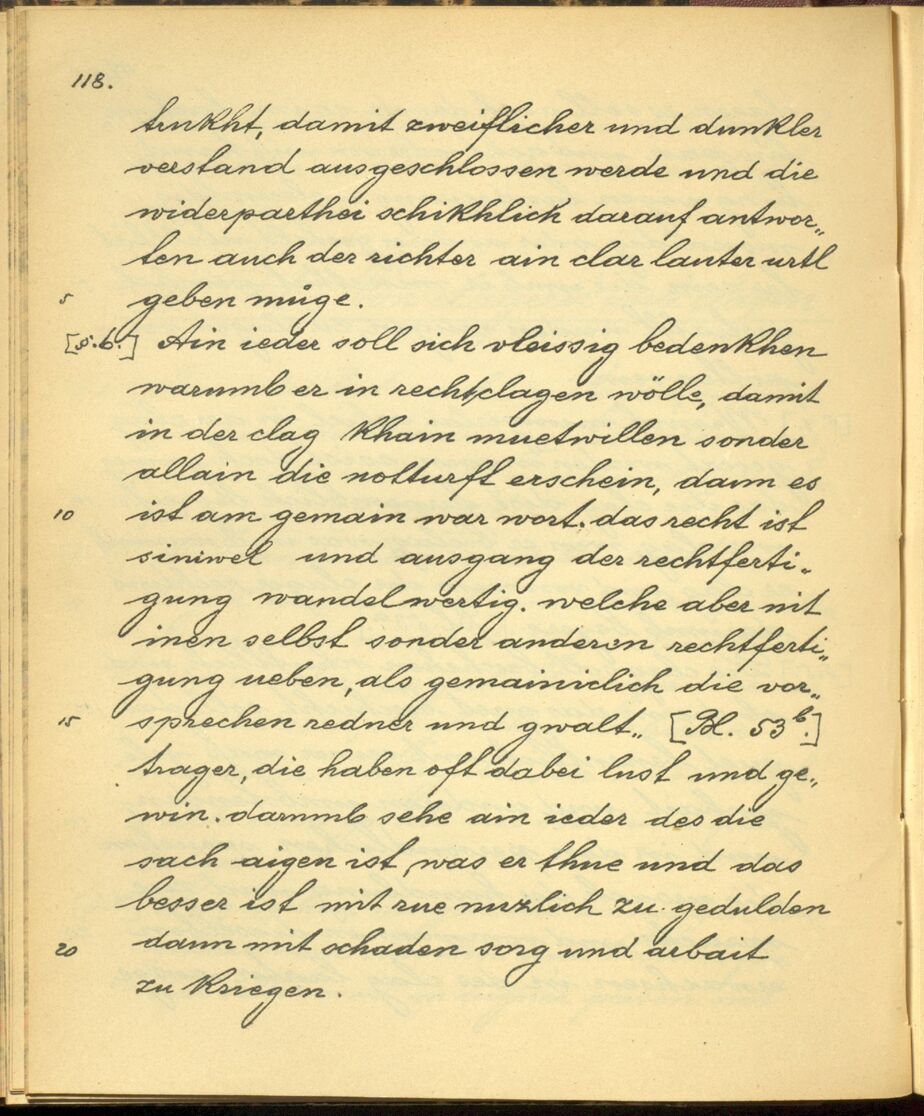 118.
trukht, damit zweiflicher und dunkler
verstand ausgeschlossen werde und die
widerparthei schikhlick darauf antwor„
ten auch der richter ain clar lauter urtl
5 geben müge.
[5.b.] Ain ieder soll sich vleissig bedenkhen
warumb er in recht clagen wölle, damit
in der clag khain muetwillen sonder
allain die notturft erschein, dann es
10 ist am gemain war wort. das recht ist
siniwel und ausgang der rechtferti„
gung wandelwertig. welche aber nit
inen selbst sonder anderen rechtferti„
gung ueben, als gemainiclich die vor„
15 sprechen redner und gwalt„ [Bl. 53b.]
trager, die haben oft dabei lust und ge„
win. darumb sehe ain ieder des die
sach aigen ist, was er thue und das
besser ist mit rue nuzlich zu gedulden
20 dann mit schaden sorg und arbait
zu kriegen.